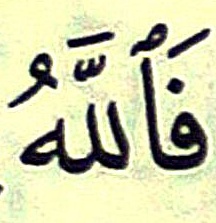 فَٱللَّهُ